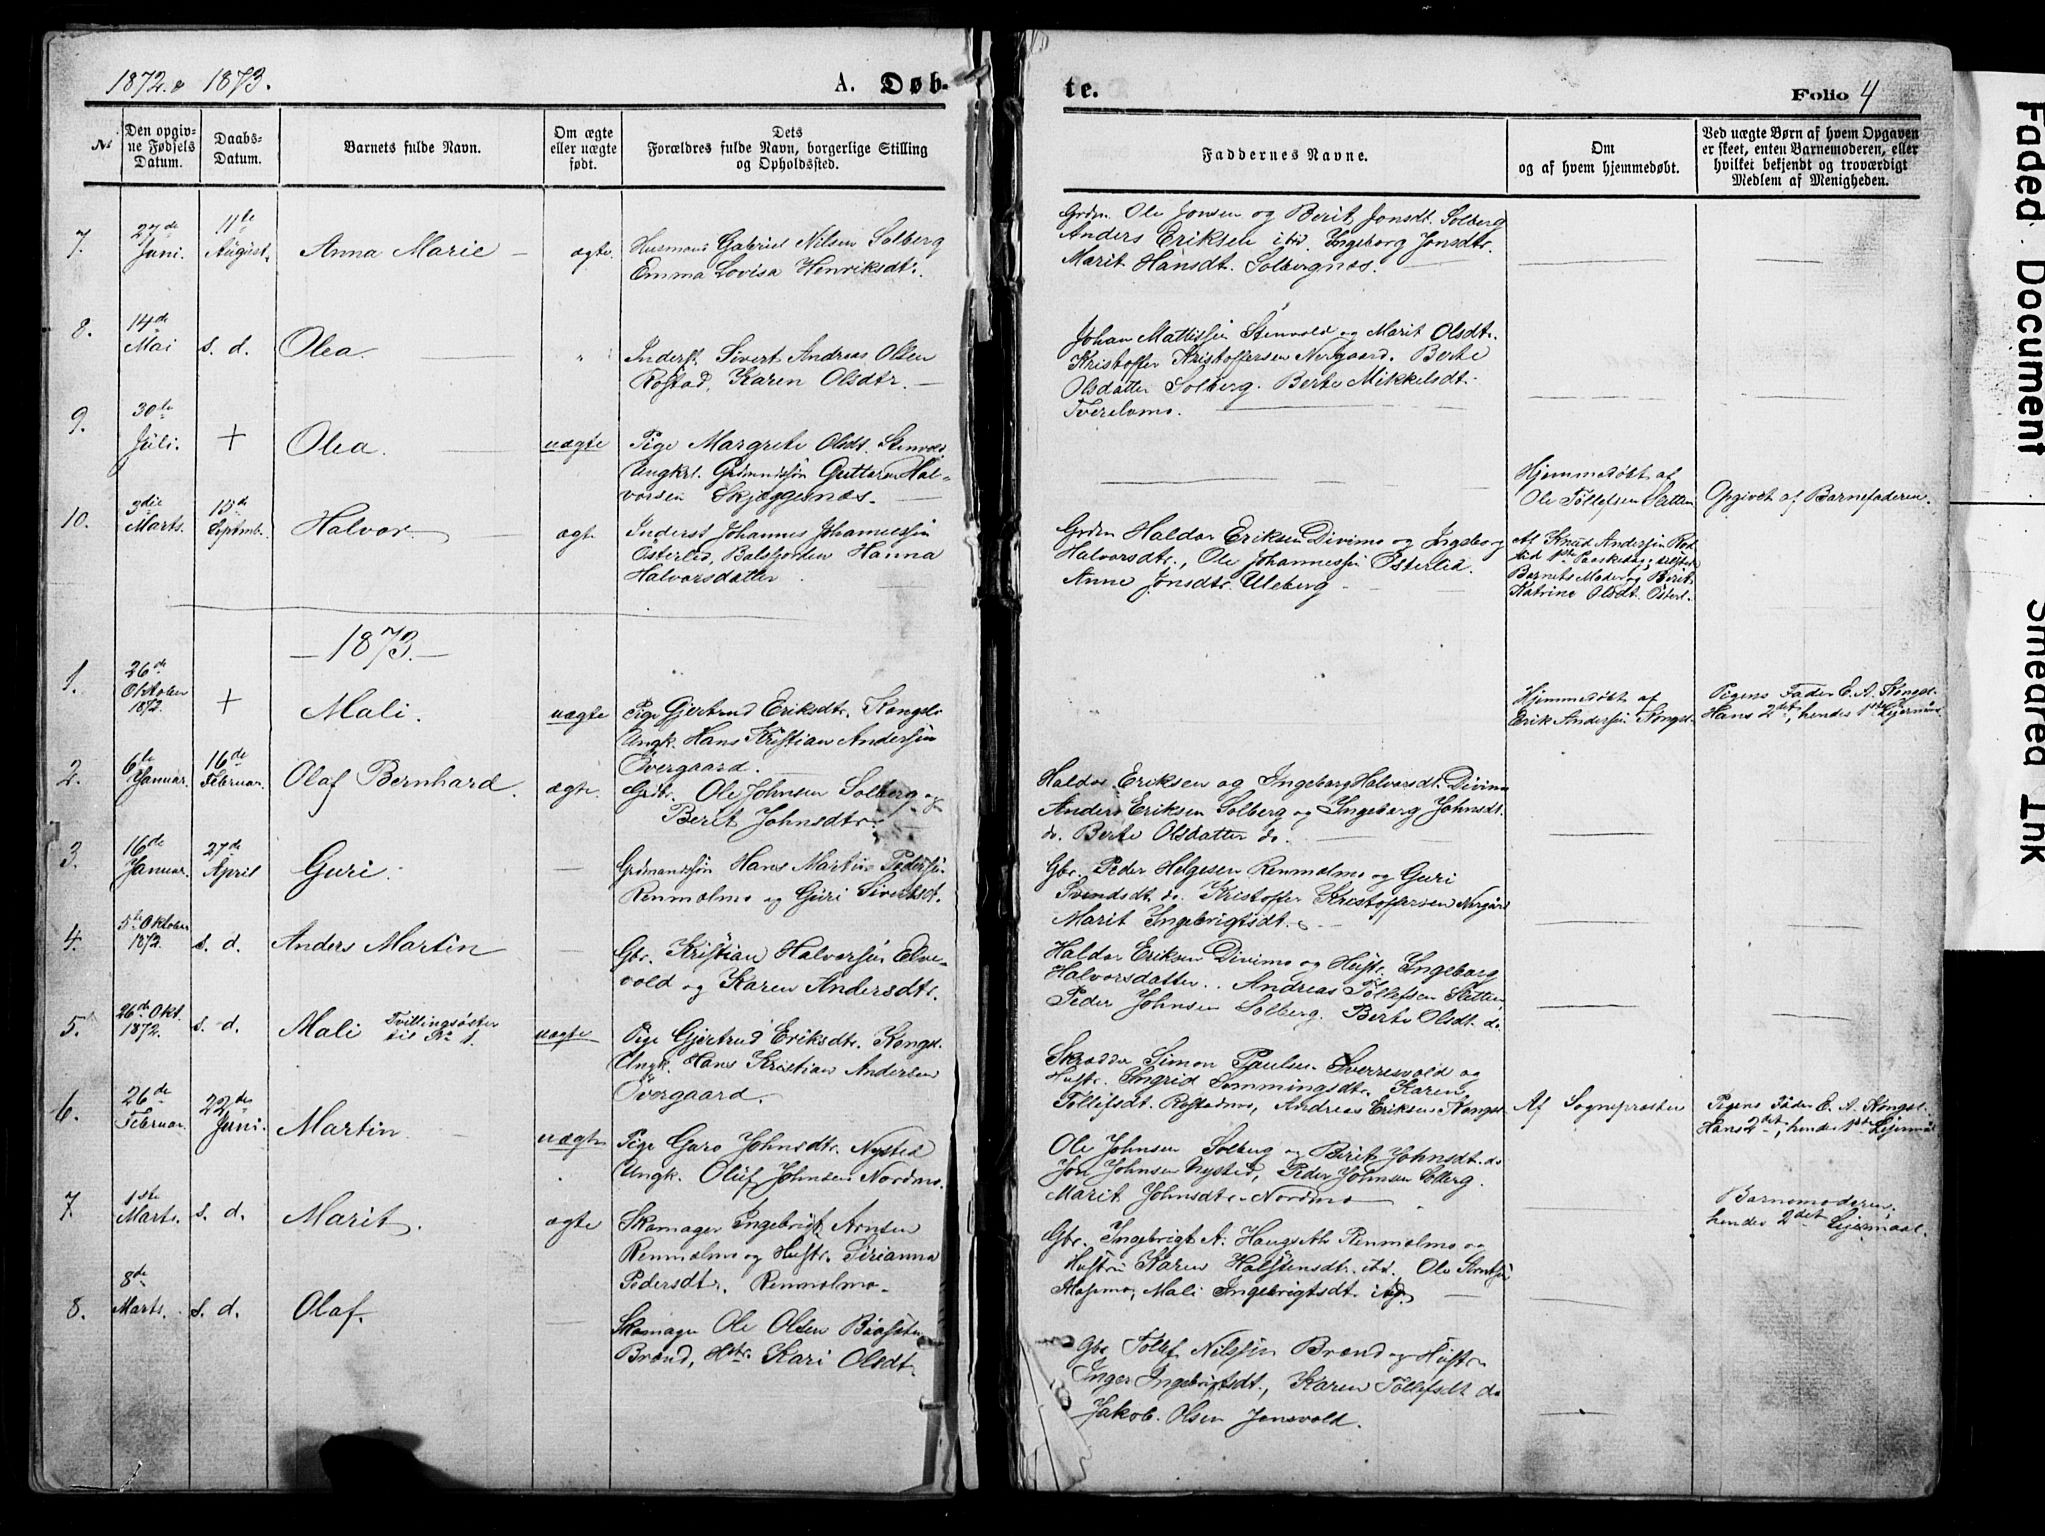 1872 & 1873.
A. Døb-
№
Den opgiv-
ne Fødsels
Datum.
Daabs-
Datum.
Barnets fulde Navn.
Om ægte
eller uægte
født.
Dets
Forældres fulde Navn, borgerlige Stilling
og Opholdssted.
7.
27de
Juni.
11te
August.
Anna Marie
ægte.
Husmand Gabriel Nilsen Solberg
Emma Lovisa Henriksdtr.
8.
14de
Mai
s. d.
Olea.
"
Inderst. Sivert Andreas Olsen
Rostad, Karen Olsdtr.
9.
30te
Juli.
+
Olea.
uægte
Pige Margrete Olsdt. Stenvold
Ungkrl. Grdmandssøn Guttorm Hal-
vorsen Skjæggenæs.
10.
3die
Marts.
15de
Septmb.
Halvor.
ægt.
Inderst Johannes Johannessen
Østerlid, Balsfjorden Hanna
Halvorsdatter.
1873.
1.
26de
Oktober
1872.
+
Mali.
uægte
Pige Gjertrud Eriksdtr. Kongsl.
Ungk. Hans Kristian Andersen
Øvergaard.
2.
6te
Januar.
16de
Februar.
Olaf Bernhard.
ægte.
Gdbr. Ole Johnsen Solberg og
Berit Johnsdtr.
3.
16de
Januar.
27de
April
Guri.
Grdmandssøn Hans Martin Pedersen
Renmælmo og Guri Sivertsdt.
4.
5te Oktober
1872.
s. d.
Anders Martin
Gbr. Kristian Halvorsen Elve-
vold og Karen Andersdtr.
5.
26de Okt.
1872.
s. d.
Mali Tvillingsøster
til No 1.
uægte
Pige Gjertrud Eriksdtr. Kongsl.
Ungk. Hans Kristian Andersen
Øvergaard.
6.
26de
Februar.
22de
Juni.
Martin.
uægte
Pige Guro Johnsdtr. Nysted
Ungk. Oluf Johnsen Nordmo.
7.
1ste
Marts.
s. d.
Marit.
ægte
Skomager Ingebrigt Arntsen
Renmælmo og Hustr. Sirianna
Pedersdtr. Renmælmo.
8.
8de
Marts.
s. d.
Olaf.
Skomager Ole Olsen
Brand, Hstr. Kari Olsdt.
te.
Folio 4
Faddernes Navne.
Om
og af hvem hjemmedøbt.
Ved uægte Børn af hvem Opgaven
er skeet, enten Barnemoderen, eller
hvilket bekjendt og troværdigt
Medlem af Menigheden.
Grdm. Ole Jonsen og Berit Jonsdt. Solberg
Anders Eriksen ibid. Ingeborg Jonsdtr.
Marit Hansdt. Solbergnæs.
Johan Mattissen Stenvold og Marit Olsdtr.
Kristoffer Kristoffersen Nergaard. Berte
Olsdatter Solberg. Berte Mikkelsdt.
Tverelvmo.
Hjemmedøbt af
Ole Tollefsen Sletten
Opgivet af Barnefaderen.
Grdm Haldor Eriksen Divimo og Ingeborg
Halvorsdtr., Ole Johannessen Østerlid.
Anne Jonsdtr. Uleberg
Af Knud Andersen
1ste Paaskedag;
Barnets Moder og Berit
Katrine Olsdt. Østerl.
Hjemmedøbt af
Erik Andersen Kongsl.
Pigens Fader E. A. Kongsl.
Hans 2det, hendes 1ste Leiermaal
Haldor Eriksen og Ingeborg Halvorsdt. Divimo
Anders Eriksen Solberg og Ingeborg Johnsdt.
do. Berte Olsdatter do
Gbr. Peder Helgesen Renmælmo og Guri
Svendsdt. do. Kristoffer Kristoffersen Nergård
Marit Ingebrigtsdt.
Haldor Eriksen Divimo og Hustr. Ingeborg
Halvorsdatter. Andreas Tollefsen Sletten
Peder Johnsen Solberg. Berte Olsdt. do
Skrædder Simon Paulsen Sverresvold og
Hustr. Ingrid Lemmingsdtr. Karen
Tollefsdt. Rostadmo, Andreas Eriksen Kongsl.
Af Sognepræsten
Pigens Fader E. A. Kongsl.
Hans 2det, hendes 1ste Leiermaal
Ole Johnsen Solberg og Berit Johnsdt. do
Jon Johnsen Nysted, Peder Johnsen Solberg.
Marit Johnsdtr. Nordmo
Barnemoderen,
hendes 2det Leiermaal.
Gbr. Ingebrigt A. Haugseth Renmælmo og
Hustru Karen Halstensdt. ibd. Ole Arntsen
Mosmo, Mali Ingebrigtsdt. ibd.
Gbr Tollef Nilsen Brand og Hustru
Inger Ingebrigtsdt., Karen Tollefsdt do
Jakob Olsen Jensvold.
Faded Document
Smeared Ink